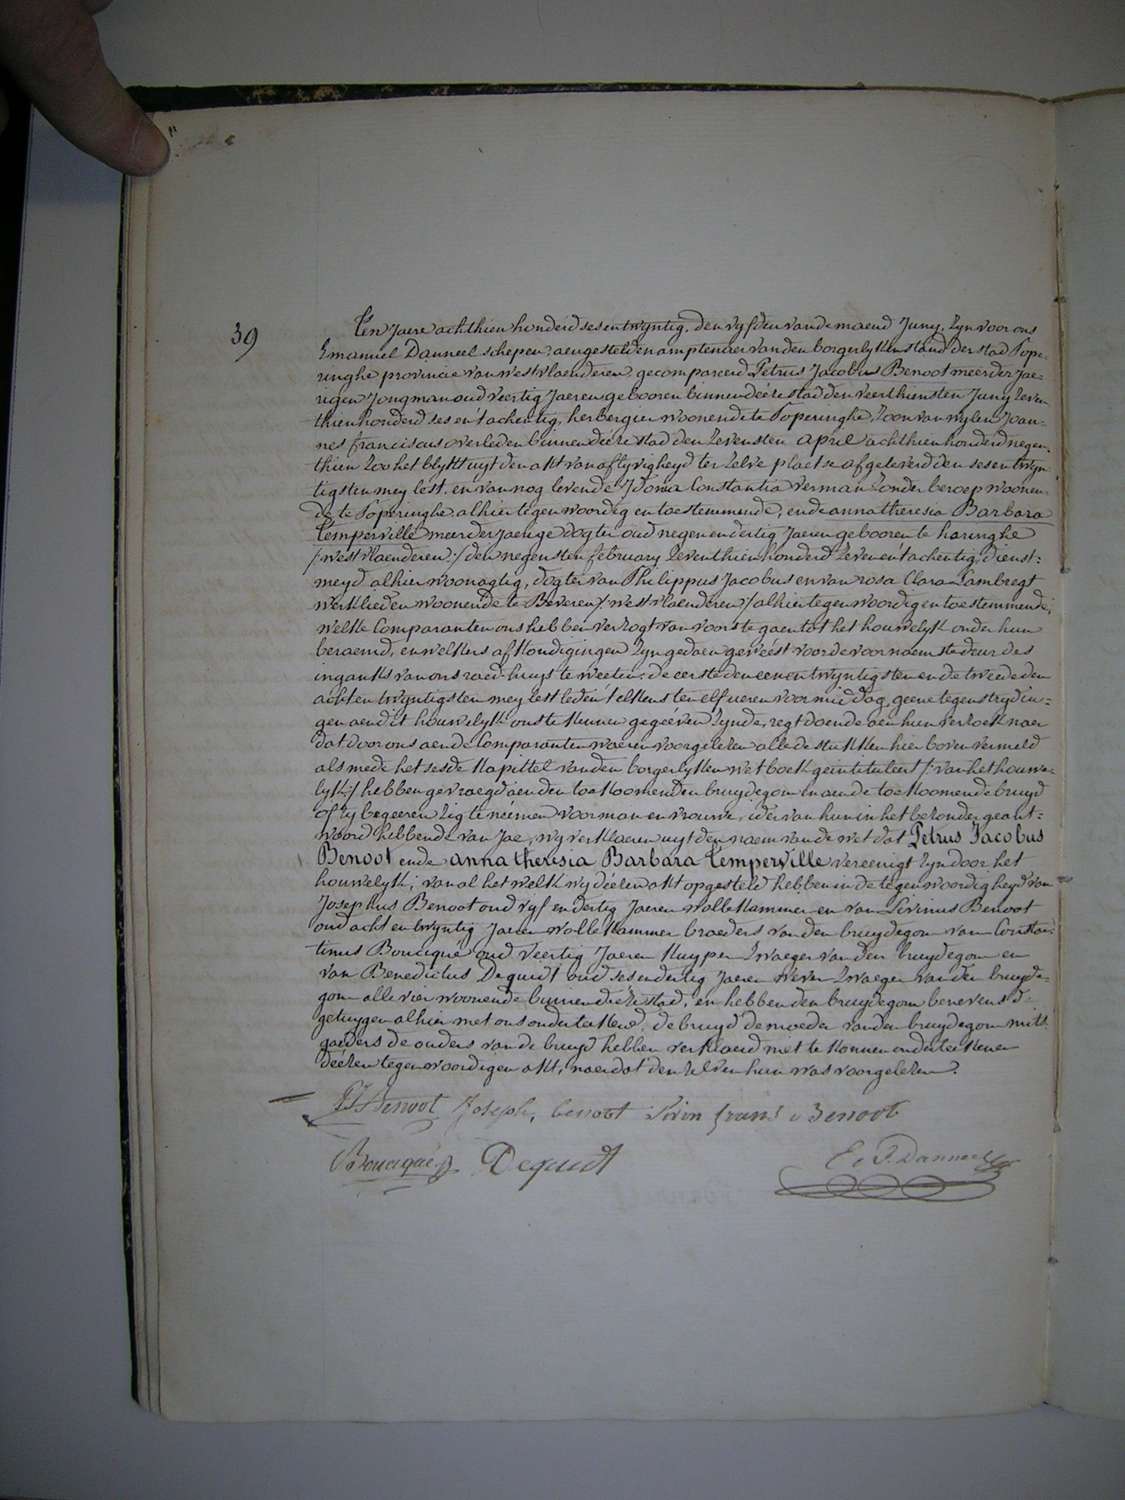 39
Ten Jaere achthien honderd sesentwyntig, den vyfden van de maend Juny, zyn voor ons
Emanuel Danneel schepen, aengestelden amptenaer van den borgerlyken stand der stad Pope-
ringhe provincie van westvlaenderen gecompareerd Petrus Jacobus Benoot meerder Jae-
rigen Jongman oud veertig Jaeren gebooren binnen deéze stad den veerthiensten Juny zeven
thien honderd ses en tachentig, herbergier woonende te Poperinghe, zoon van wylen Joan-
nes franciscus overleden binnen deéze stad den zevensten april achthien honderd negen
thien zoo het blykt uyt den akt van aflyvigheyd ter zelve plaetse afgeleverd den sesentwyn-
tigsten mey lest, en van nog levende Idonia Constantia verman zonder beroep woonen-
de te Poperinghe alhier tegenwoordig en toestemmende, ende anna theresia Barbara
Temperville meerderjaerige dogter oud negenendertig Jaeren gebooren te haringhe
/:westvlaenderen:/ den negensten february zeventhien honderd zeven en tachentig, dienst=
meyd alhier woonagtig, dogter van Philippus Jacobus en van rosa Clara Lambregt
werklieden woonende te Beveren /:westvlaenderen:/ alhier tegenwoordig en toestemmende;
welke Comparanten ons hebben verzogt van voorste gaen tot het houwelyk onder hun
beraemd, en welkers afkondigingen zyn gedaen geweést voor de voornaemste deur des
ingankx van ons raed-huys te weeten, de eerste den eenentwyntigsten en de tweede den
achtentwyntigsten mey lest leden telkens ten elf ueren voormiddag, geene tegenstrydin-
gen aen dit houwelyk ons te kennen gegeéven zynde, regt doende aen hun verzoek naer
dat door ons aen de Comparanten waeren voorgelezen alle de stukken hier boven vermeld
als mede het sesde kapittel van den borgerlyken wetboek geintituleert /:van het houwe-
lyk:/ hebben gevraegd aen den toekoomenden bruydegom en aen de toekoomende bruyd
of zy begeeren zig te neémen voor man en vrouw, ider van hun in het bezonder geant-
woord hebbende van Jae, wy verklaeren uyt den naem van de wet dat Petrus Jacobus
Benoot ende anna theresia Barbara Temperville vereenigt zyn door het
houwelyk; van al het welk wy deézen akt opgesteld hebben in de tegenwoordigheyd van
Josephus Benoot oud vyf endertig Jaeren wolle kammer en van Livinus Benoot
oud acht en twyntig Jaeren wolle kammer broeders van den bruydegom van Constan-
tinus Boucique oud veertig Jaeren kuyper zwaeger van den bruydegom en
van Benedictus Dequidt oud sesendertig Jaeren wever zwaeger van den bruyde-
gom alle vier woonende binnen deéze stad, en hebben den bruydegom benevens d-
getuygen alhier met ons onderteekend, de bruyd de moeder van den bruydegom mits
gaeders de ouders van de bruyd hebben verklaerd niet te konnen onderteekenen
deézen tegenwoordigen akt, naer dat den zelven hun was voorgelezen.
PJ Benoot Joseph, benoot Livin frans Benoot
Boucique Dequidt E. J. Danneel